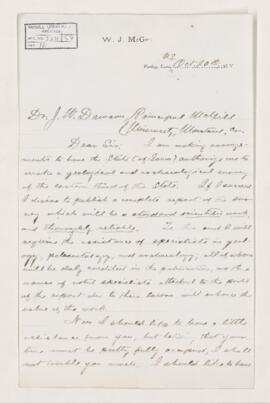 W. J. McGee
Farley, Iowa, Oct. 20th 187
Dr. J. W. Dawson Principal McGill
University, Montreal, Can.
Dear Sir: I am making arrange-
ments to have the State (of Iowa) authorize me to
make a geological and archaeological survey
of the eastern third of the State. If I succeed
I desire to publish a complete report of the sur-
vey which will be a standard scientific work,
and thoroughly reliable. To this end I will
require the assistance of specialists in geol-
ogy, palaeontology, and archaeology; all of whom
will be duly credited in the publication, as the
names of noted specialists attached to the parts
of the report due to their labors will enhance the
value of the work.
Now I should like to have a little
assistance from you, but knowing that your
time must be pretty fully occupied, I shall
not trouble you much. I should like to have